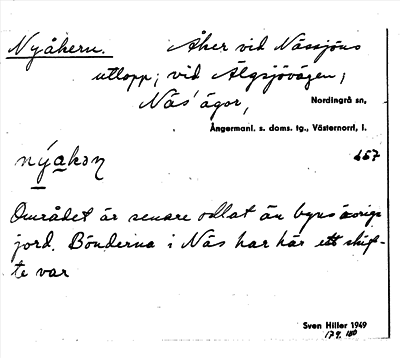 Nyåkern. Åker vid Nässjöns
utlopp; vid Älgsjövägen;
Näs' ägor, Nordingrå sn,
Ångermanl. s. doms. tg., Västernorrl. l.
nýakən 657
Området är senare odlat än byns övriga
jord. Bönderna i Näs har här ett skif-
te var
Sven Hiller 1949